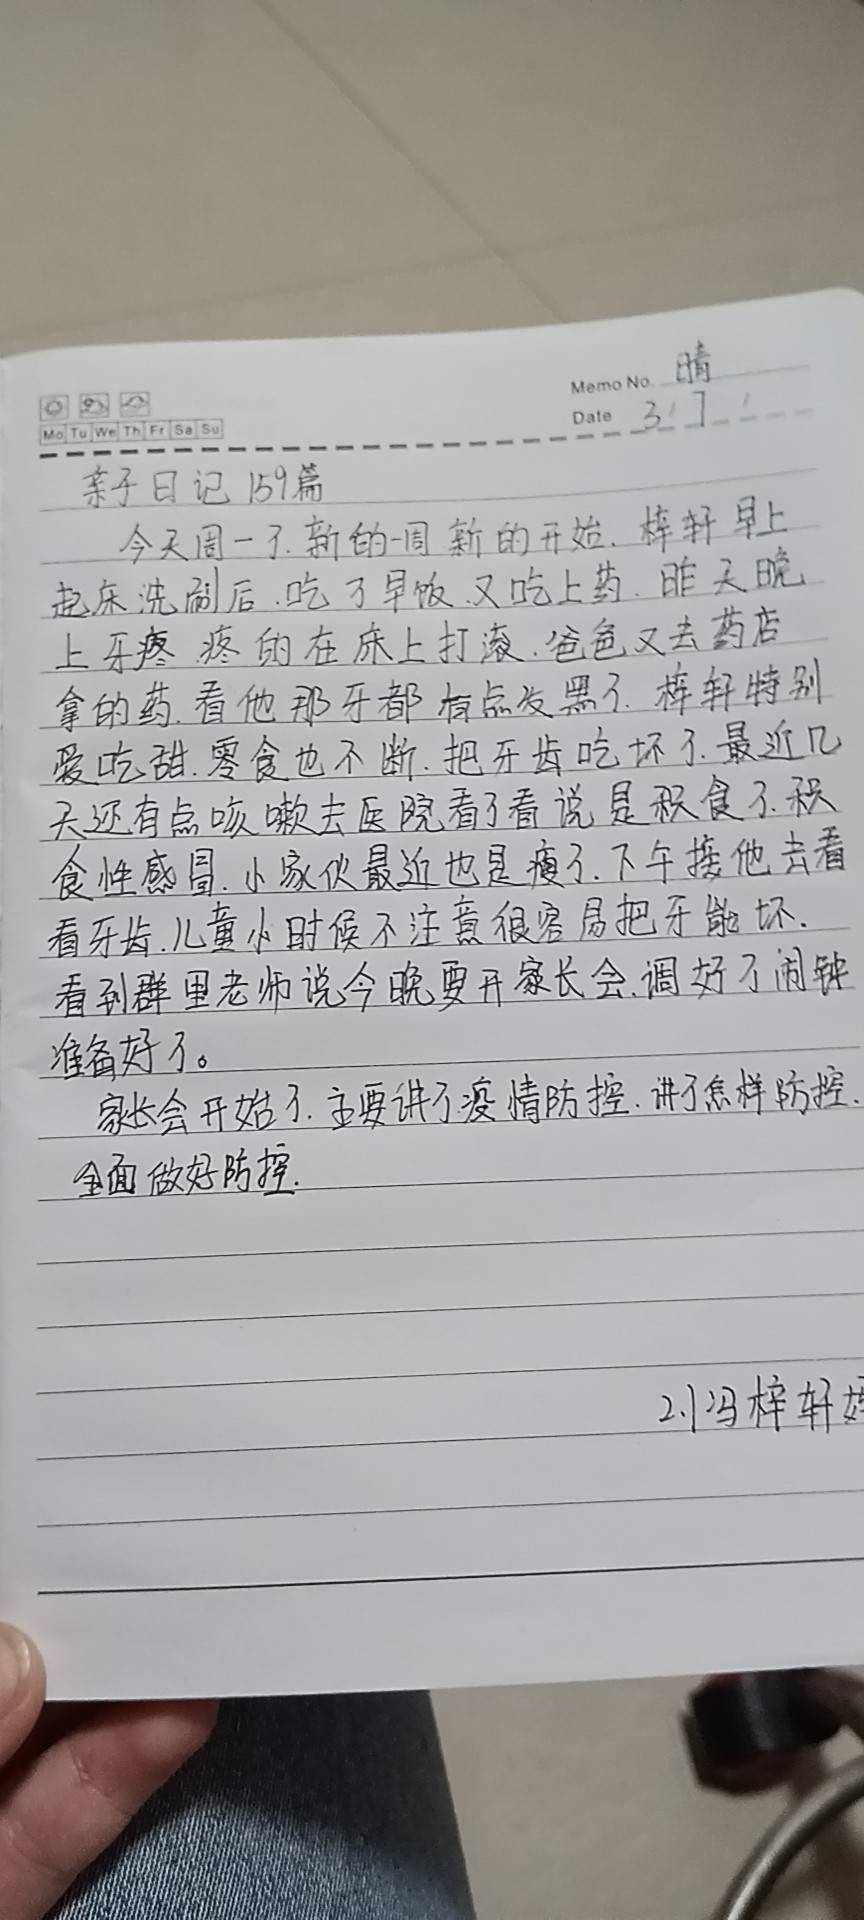 Memo No. 晴
Mo Tu We Th Fr Sa Su
Date 3 7
亲子日记159篇
今天周一了.新的一周新的开始.梓轩早上
起床洗刷后.吃了早饭.又吃上药.昨天晚
上牙疼.疼的在床上打滚.爸爸又去药店
拿的药.看他那牙都有点发黑了.梓轩特别
爱吃甜.零食也不断.把牙齿吃坏了.最近几
天还有点咳嗽去医院看了看说是积食了.积
食性感冒.小家伙最近也是瘦了.下午接他去看
看牙齿.儿童小时候不注意很容易把牙能坏.
看到群里老师说今晚要开家长会.调好了闹钟
准备好了。
家长会开始了.主要讲了疫情防控.讲了怎样防控.
全面做好防控.
2.1冯梓轩妈